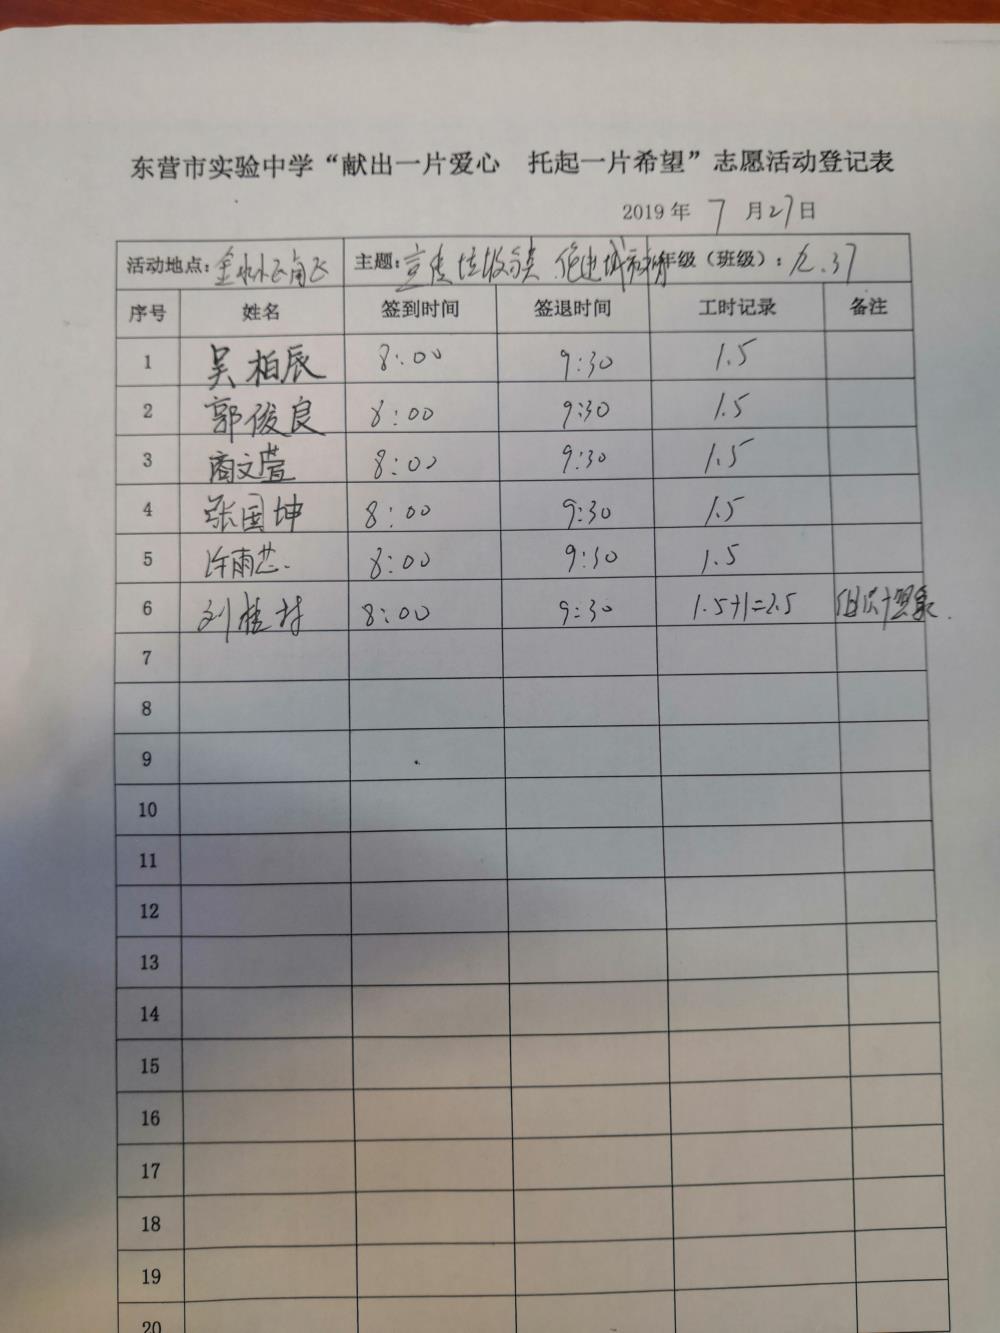 东营市实验中学“献出一片爱心 托起一片希望”志愿活动登记表
2019年 7 月27日
活动地点: 主题: 宣传垃圾分类 年级（班级）: 37
序号 姓名 签到时间 签退时间 工时记录 备注
1 吴柏辰 8:00 9:30 1.5
2 郭俊良 8:00 9:30 1.5
3 商文萱 8:00 9:30 1.5
4 张国坤 8:00 9:30 1.5
5 许雨芯. 8:00 9:30 1.5
6 刘桂村 8:00 9:30 1.5+1=2.5
7
8
9
10
11
12
13
14
15
16
17
18
19
20